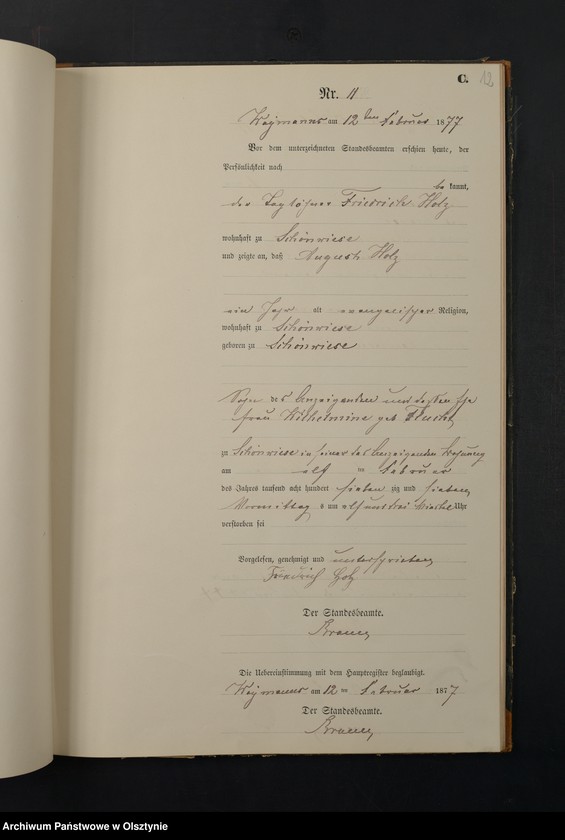 C.
12
Nr. 11
Weymanns am 12ten Februar 1877
Vor dem unterzeichneten Standesbeamten erschien heute, der
Persönlichkeit nach
be kannt,
der Tagelöhner Friedrich Holz
wohnhaft zu Schönwiese
und zeigte an, daß August Holz
ein Jahr alt evangelischer Religion,
wohnhaft zu Schönwiese
geboren zu Schönwiese
Sohn des Anzeigenden und dessen Ehe
frau Wilhelmine geb
zu Schönwiese in seiner des Anzeigenden Wohnung
am elf ten Februar
des Jahres tausend acht hundert sieben zig und sieben
Vormittag s um elf und drei Viertel Uhr
verstorben sei
Vorgelesen, genehmigt und unterschrieben
Friedrich Holz
Der Standesbeamte.
Die Uebereinstimmung mit dem Hauptregister beglaubigt.
Weymanns am 12 ten Februar 1877
Der Standesbeamte.
Archiwum Państwowe w Olsztynie